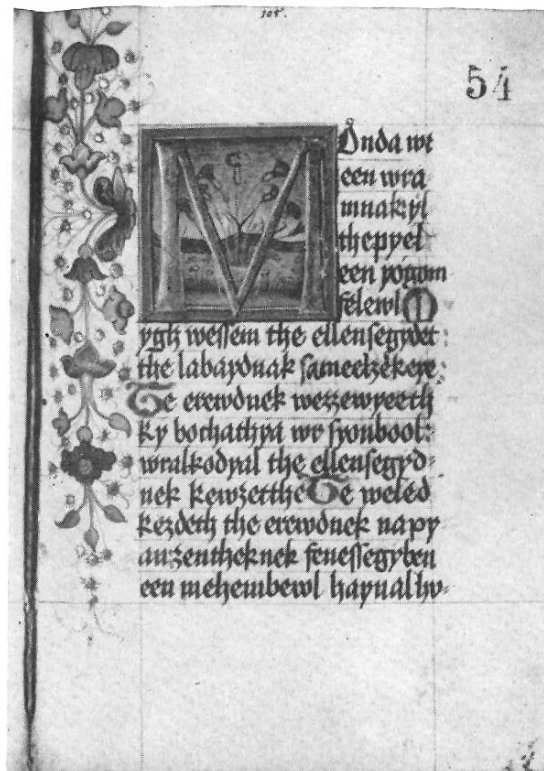 54
MOnda wr
een wra
mnak yl
the pyel
een yogom
felewl M
ygh wessem the ellensegydet:
the labaydnak sameelzekere:
Te erewdnek wezzewyeeth
ky bochathya wr syonbool:
wralkodyal the ellensegyd-
nek kewzetthe Te weled
kezdeth the erewdnek napy
an zentheknek fenessegyben
een mehembewl haynal hv-